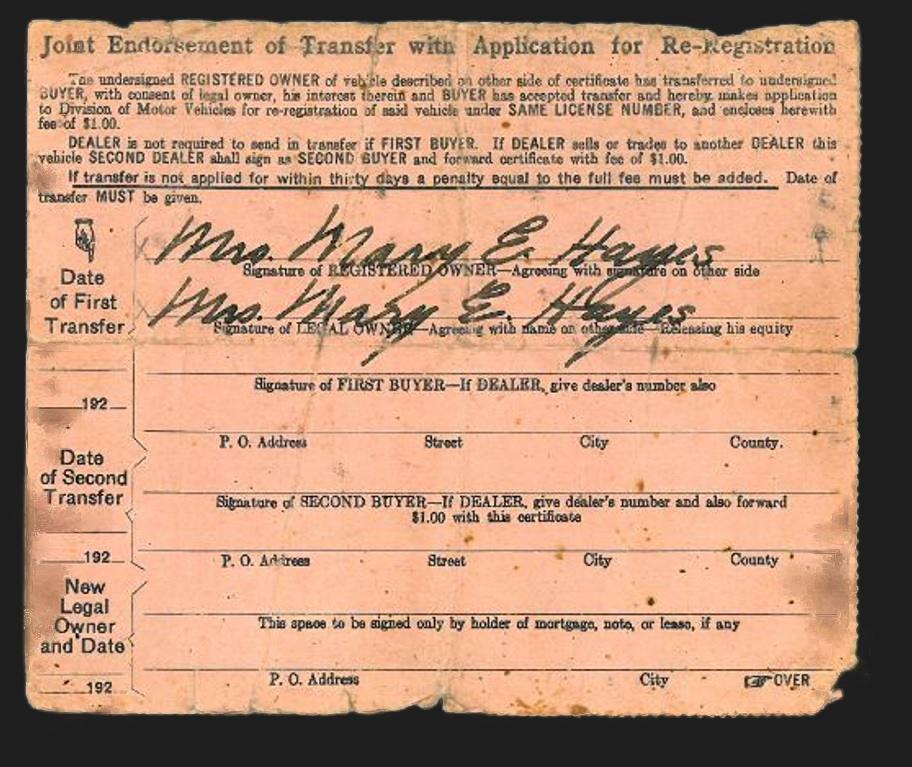 Joint Endorsement of Transfer with Application for Re-Registration
The undersigned REGISTERED OWNER of vehicle described on other side of certificate has transferred to undersigned
BUYER, with consent of legal owner, his interest therein and BUYER has accepted transfer and hereby makes application
to Division of Motor Vehicles for re-registration of said vehicle under SAME LICENSE NUMBER, and encloses herewith
fee of $1.00.
DEALER is not required to send in transfer if FIRST BUYER. If DEALER sells or trades to another DEALER this
vehicle SECOND DEALER shall sign as SECOND BUYER and forward certificate with fee of $1.00.
If transfer is not applied for within thirty days a penalty equal to the full fee must be added. Date of
transfer MUST be given.
X Mrs. Mary E. Hayes
Signature of REGISTERED OWNER—Agreeing with signature on other side
Date
of First
Transfer
X Mrs. Mary E. Hayes
Signature of LEGAL OWNER—Agreeing with name on other side—Releasing his equity
Signature of FIRST BUYER—If DEALER, give dealer's number also
192
P. O. Address Street City County.
Date
of Second
Transfer
Signature of SECOND BUYER—If DEALER, give dealer's number and also forward
$1.00 with this certificate
192
P. O. Address Street City County
New
Legal
Owner
and Date
This space to be signed only by holder of mortgage, note, or lease, if any
192
P. O. Address City OVER